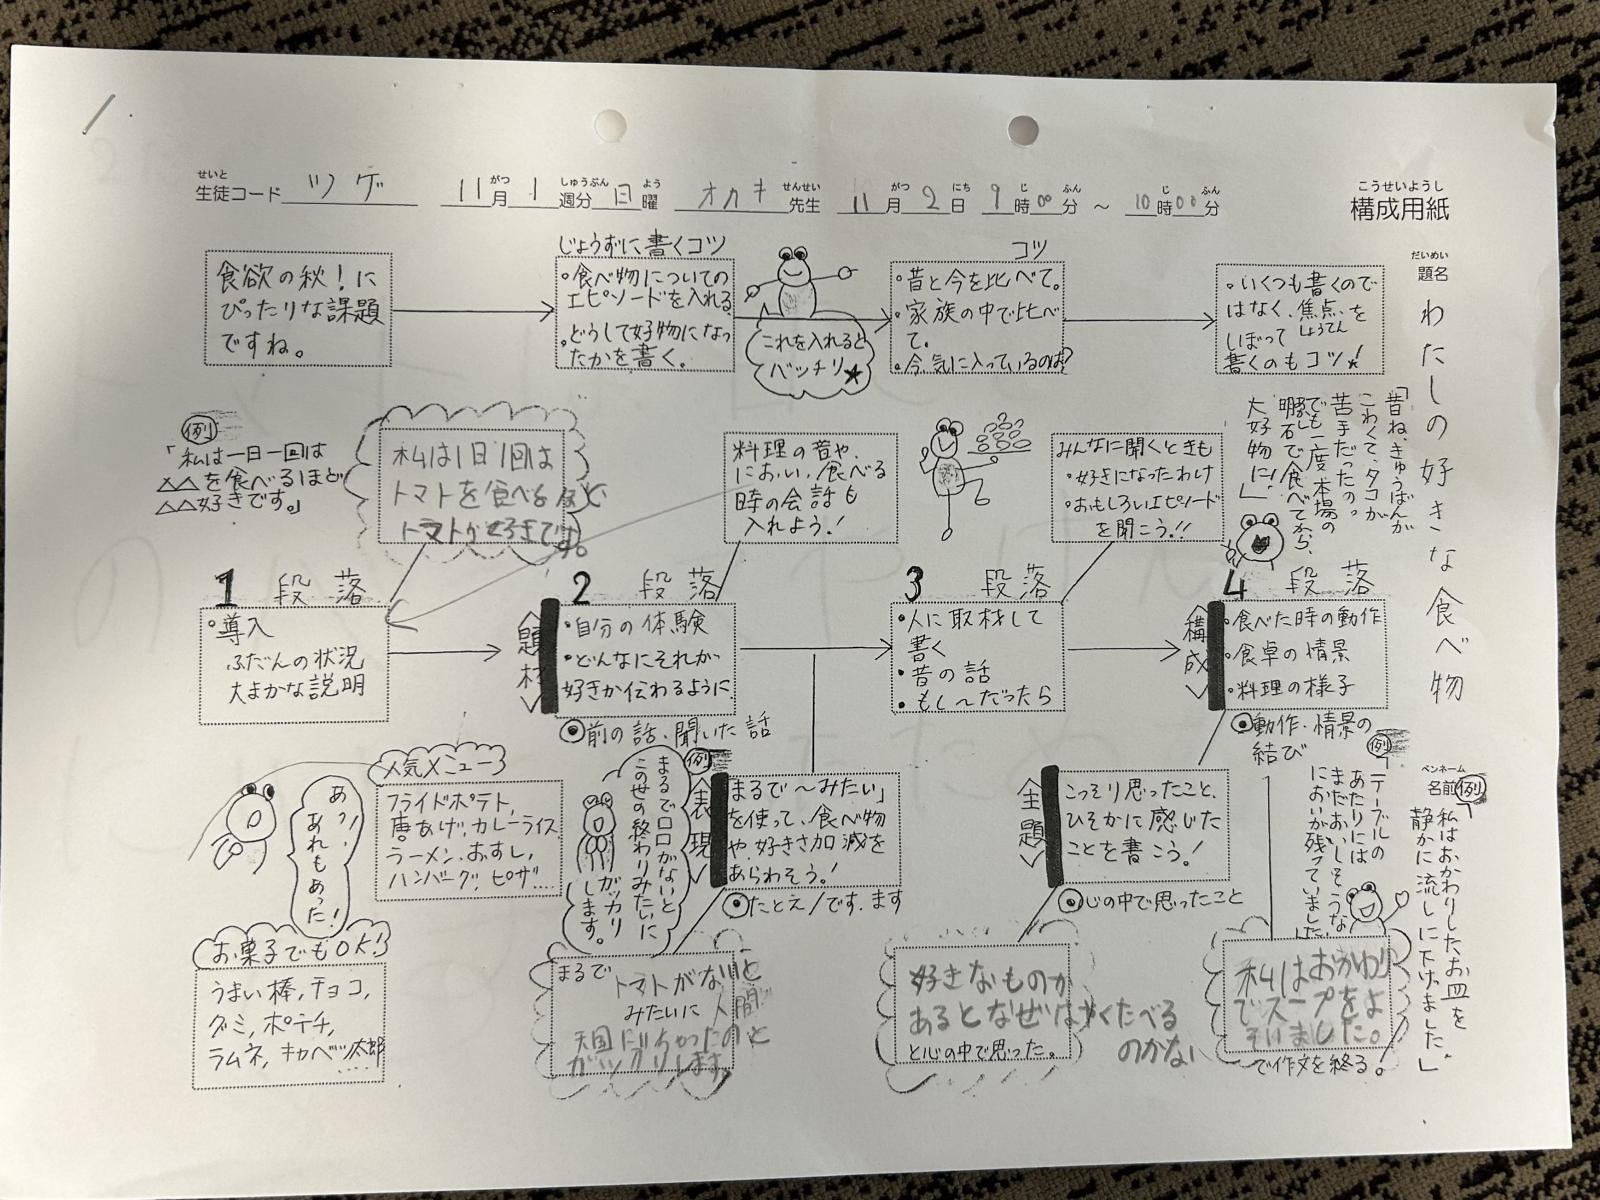 せいと
生徒コード ツゲ 11月1週分日曜 オカキ先生 11月2日9時00分 ~ 10時00分
がつ しゅうぶん よう せんせい がつ にち じ ふん じ ふん
こうせいようし
構成用紙
だいめい
題名
わたしの好きな食べ物
ペンネーム
名前
食欲の秋!に
ぴったりな課題
ですね。
じょうずに書くコツ
・食べ物についての
エピソードを入れる。
・どうして好物になっ
たかを書く。
これを入れると
バッチリ★
コツ
・昔と今を比べて。
・家族の中で比べ
て。
・今、気に入っているのは?
・いくつも書くので
はなく、焦点を
しょうてん
しぼって
書くのもコツ★!
例
「私は一日一回は
△△を食べるほど
△△好きです。」
私は1日1回は
トマトを食べるほど
トマトが好きです。
料理の音や、
におい、食べる
時の会話も
入れよう!
みんなに聞くときも
・好きになったわけ
・おもしろいエピソード
を聞こう!!
「昔ね、きゅうばんが
こわくて、タコが
苦手だったの。
でも一度本場の
明石で食べてから、
大好物に!」
1 段落
・導入
ふだんの状況
大まかな説明
2 段落
<題材>
・自分の体験
・どんなにそれが
好きか伝わるように
◉前の話・聞いた話
3 段落
・人に取材して
書く
・昔の話
・もし〜だったら
4 段落
<構成>
・食べた時の動作
・食卓の情景
・料理の様子
◉動作・情景の
結び
人気メニュー
フライドポテト、
唐あげ、カレーライス
ラーメン、おすし、
ハンバーグ、ピザ....
あっ!
あれもあった!
お菓子でもOK!
うまい棒、チョコ、
グミ、ポテチ、
ラムネ、キャベツ太郎
....
例
まるで□□がないと
この世の終わりみたいに
ガッカリ
します。
<表現>
「まるで〜みたい」
を使って、食べ物
や、好きさ加減を
あらわそう!
◉たとえ/です.ます
まるで
トマトがないと
みたいに 人間
天国にいちゃったのと
ガックリします。
<主題>
こっそり思ったこと、
ひそかに感じた
ことを書こう!
◉心の中で思ったこと
好きなものが
あるとなぜはやくたべる
のかな
と心の中で思った。
例
テーブルの
あたりには
まだおいしそうな
においが残っていました。
例
「私はおかわりしたお皿を
静かに流しに下げました。」
私はおかわり
でスープをよ
そいました。
で作文を終る。